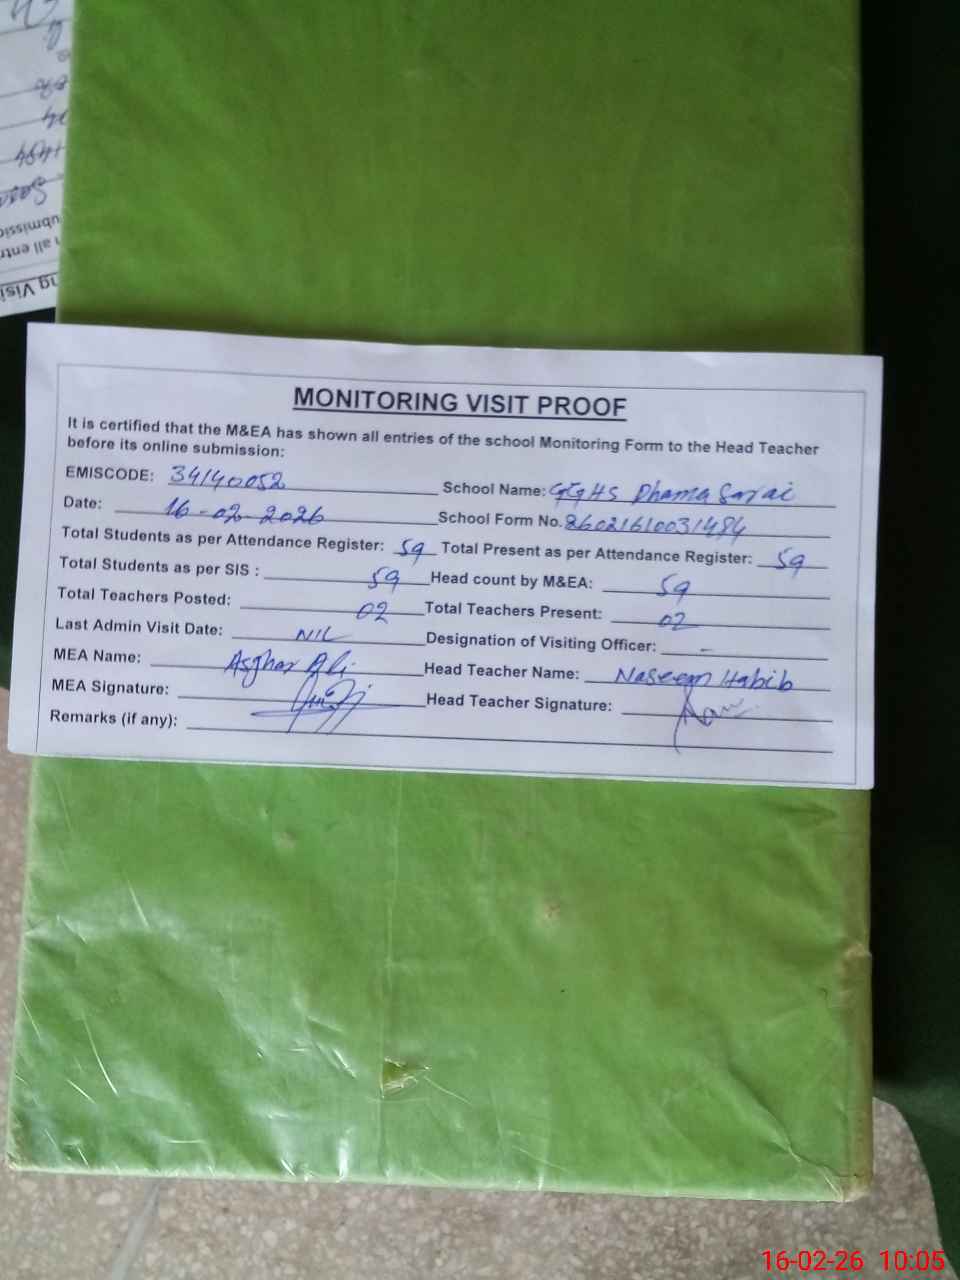 MONITORING VISIT PROOF
It is certified that the M&EA has shown all entries of the school Monitoring Form to the Head Teacher
before its online submission:
EMISCODE: 34140052 School Name: GGHS Dhama Sarai
Date: 16-02-2026 School Form No. 26021610031484
Total Students as per Attendance Register: 59 Total Present as per Attendance Register: 59
Total Students as per SIS : 59 Head count by M&EA: 59
Total Teachers Posted: 02 Total Teachers Present: 02
Last Admin Visit Date: NIL Designation of Visiting Officer: -
MEA Name: Asghar Ali Head Teacher Name: Naseem Habib
MEA Signature: Head Teacher Signature:
Remarks (if any):
16-02-26 10:05